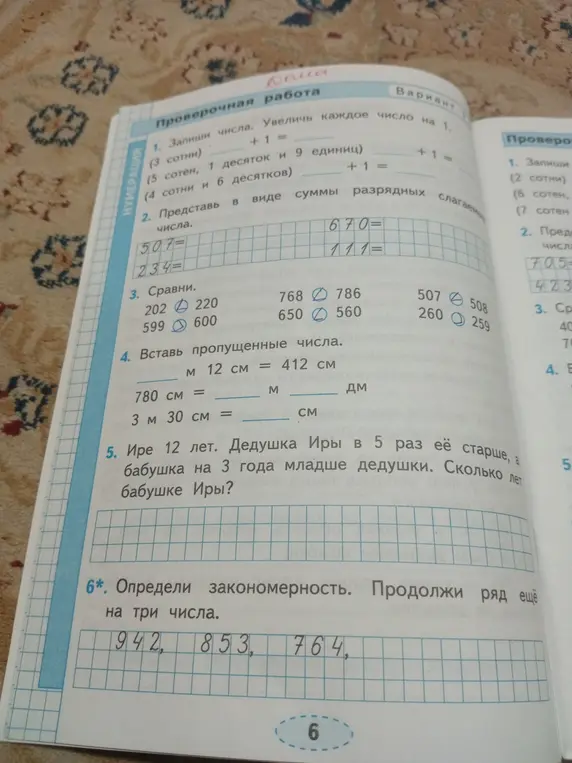 Проверочная работа
Вариант
НУМЕРАЦИЯ
1. Запиши числа. Увеличь каждое число на 1.
(3 сотни) ____ + 1 = ____
(5 сотен, 1 десяток и 9 единиц) ____ + 1 = ____
(4 сотни и 6 десятков) ____ + 1 = ____
2. Представь в виде суммы разрядных слагаемых
числа.
507= 670=
234= 111=
3. Сравни.
202 220 768 786 507 508
599 600 650 560 260 259
4. Вставь пропущенные числа.
____ м 12 см = 412 см
780 см = ____ м ____ дм
3 м 30 см = ____ см
5. Ире 12 лет. Дедушка Иры в 5 раз её старше, а
бабушка на 3 года младше дедушки. Сколько лет
бабушке Иры?
6*. Определи закономерность. Продолжи ряд ещё
на три числа.
942, 853, 764,
6
Проверо
1. Запиши
(2 сотни)
(6 сотен,
(7 сотен
2. Пред
числ
705=
423
3. Ср
40
4.
5